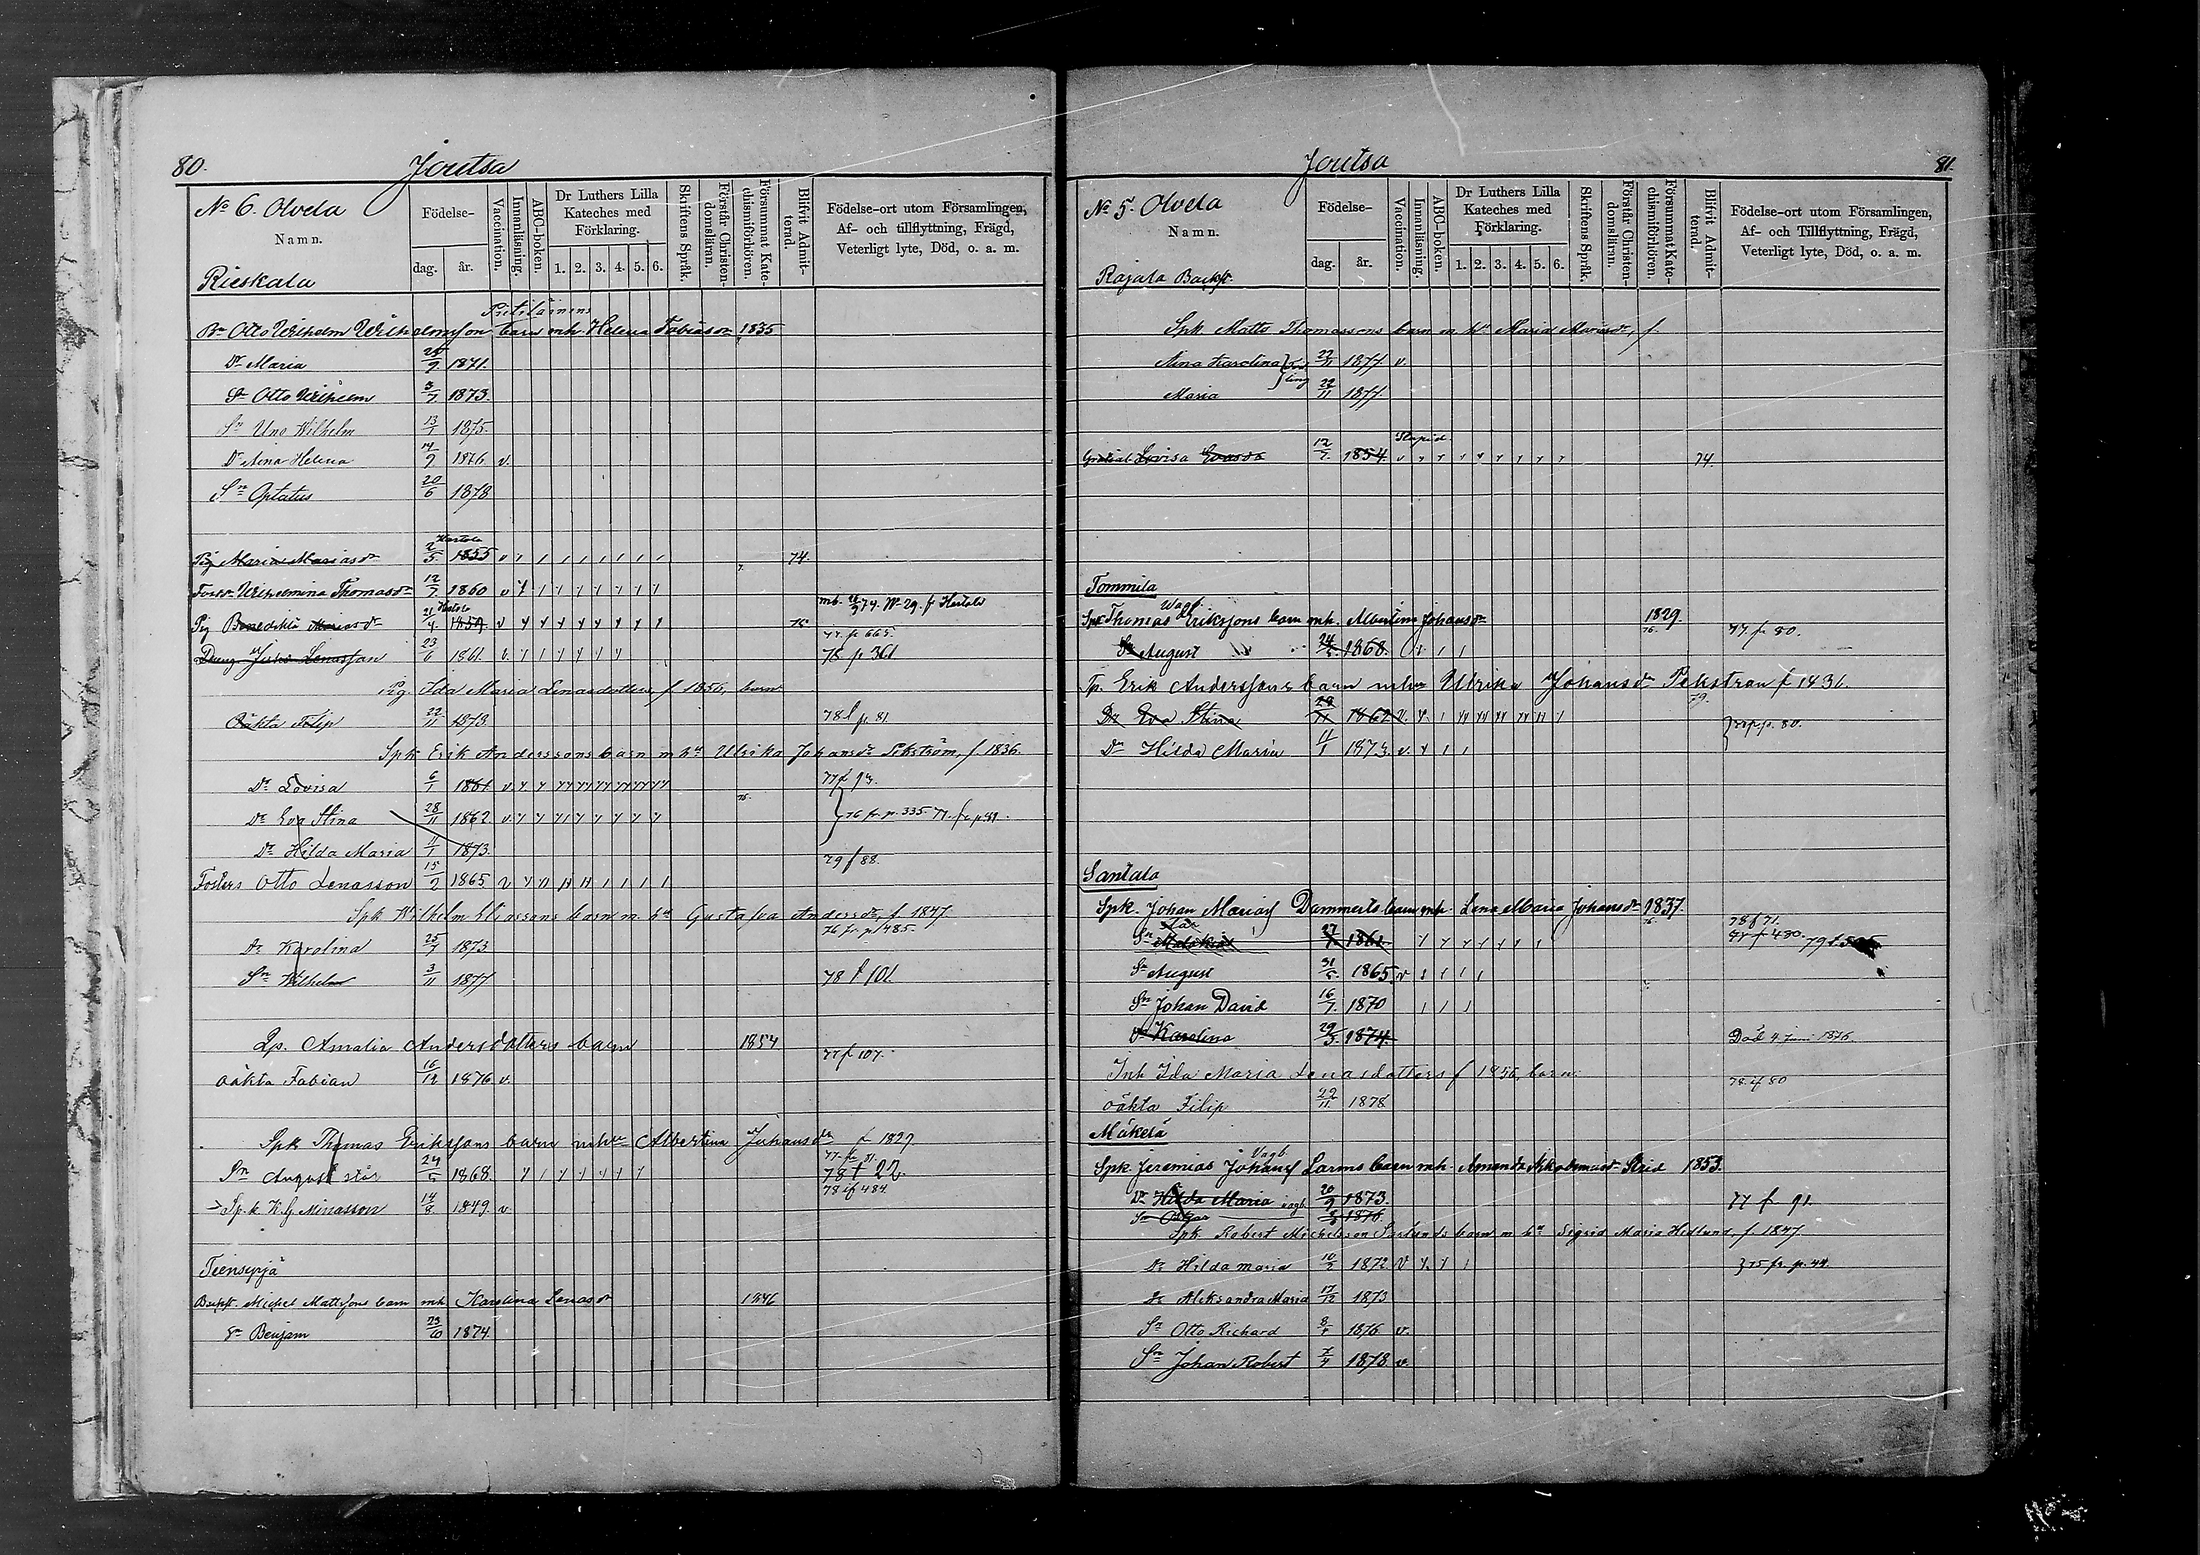 80. Joutsa
No 6. Olvela
Namn.
Rieskala
Födelse-
dag. år.
Vaccination.
Innanläsning.
ABC-boken.
Dr Luthers Lilla Kateches med Förklaring.
1. 2. 3. 4. 5. 6.
Skriftens Språk.
Förstår Christendomsläran.
Försummat Katechismiförhören.
Blifvit Admitterad.
Födelse-ort utom Församlingen,
Af- och tillflyttning, Frägd,
Veterligt lyte, Död, o. a. m.
Otto Wilhelm Wilhelmsson barn mh. Helena Tobiasdr 1835
Dr Maria 9 1871.
Sn Otto Wilhelm 3/7 1873.
Sn Uno Wilhelm 13/1 1875.
Dr Aina Helena 14/9 1876 v.
Sn Optatus 20/6 1878
Hartola
Pig Maria Mariasdr 2/5 1855 v 74.
Wilhelmina Thomasdr 12/7 1860 v
Hartola mb. 74. No 29. f Hartola
Pig Benedikta Mariasdr 21/4 1859 v 75
77. fr 665.
Dreng Juho Lenasson 23/6 1861. v. 78 p 361
Pig. Ida Maria Lenasdotters, f 1856, barn
Oäkta Filip 22/11 1873 78 f p. 81.
Spk Erik Anderssons barn m hu Ulrika Johansdr f. 1836.
Dr Lovisa 6/1 1861 v 77 f 93.
Dr Eva Stina 28/11 1862 v 76. 76 fr. p. 335 77. f p 81.
Dr Hilda Maria 11/1 1873.
79 f 88.
Fosters Otto Lenasson 15/9 1865 v
Spk Wilhelm Eliassons barn m. hu Gustafva Andersdr, f. 1847
76 fr. p 485.
Dr Karolina 25/7 1873
Sn Wilhelm 3/11 1877 78 f 101.
Amalia Andersdotters barn 1854
77 f 107.
oäkta Fabian 16/12 1876 v.
Spk Thomas Erikssons barn mhu Albertina Johansdr f 1829
77 fr 81.
Sn August 24/5 1868. 78 f 22
78 if 484
Sp.k K.G Minasson 14/8 1849 v
Teensyrjä
Mickel Mattssons barn mh. Karolina Lenasdr 1846
Sn Benjam 23/10 1874
Joutsa 81.
No 5. Olvela
Namn.
Rajala Backst.
Födelse-
dag. år.
Vaccination.
Innanläsning.
ABC-boken.
Dr Luthers Lilla Kateches med Förklaring.
1. 2. 3. 4. 5. 6.
Skriftens Språk.
Förstår Christendomsläran.
Försummat Katechismiförhören.
Blifvit Admitterad.
Födelse-ort utom Församlingen,
Af- och Tillflyttning, Frägd,
Veterligt lyte, Död, o. a. m.
Spk Matts Thomassons barn m hu Maria Mariasdr, f.
Aina Karolina 22/11 1877. v.
Maria 22/11 1877.
Lovisa Evasdr 12/7 1854. v 74.
Tommila
Vagf.
Spk Thomas Erikssons barn mh. Albertina Johansdr 1829.
76. 77 f 80.
Sn August 24/5 1868.
Tp. Erik Anderssons barn mhu Ulrika Johansdr f 1836.
79.
Dr Eva Stina 28/11 1862 v.
p. 80.
Dr Hilda Maria 11/1 1873. v.
Santala
Spk. Johan Mariass Dammerts barn mh. Lena Maria Johansdr 1837.
76. 78 f 71.
Sn 27/7 1862 77 f 480. 79 f 505
Sn August 31/5 1865. v
Sn Johan David 16/7 1870
Dr Karolina 29/3 1874. Död 4 juni 1876
Inh Ida Maria Lenasdotters f 1856, barn
78 if 80
oäkta Filip 22/11 1878
Mäkelä
Vagb
Spk. Jeremias Johanss Larms barn mh. Amanda 1853.
Dr Hilda Maria 20/9 1873. 77 f 91.
Sn Oskar 1876
Spk Robert Michelsson Barn m hu Sigrid Maria Hedlund, f. 1847
Dr Hilda Maria 10/3 1872 v 75 fr. p. 44.
Dr Aleksandra Maria 17/12 1873
Sn Otto Richard 8/4 1876 v.
Sn Johan Robert 7/4 1878 v.